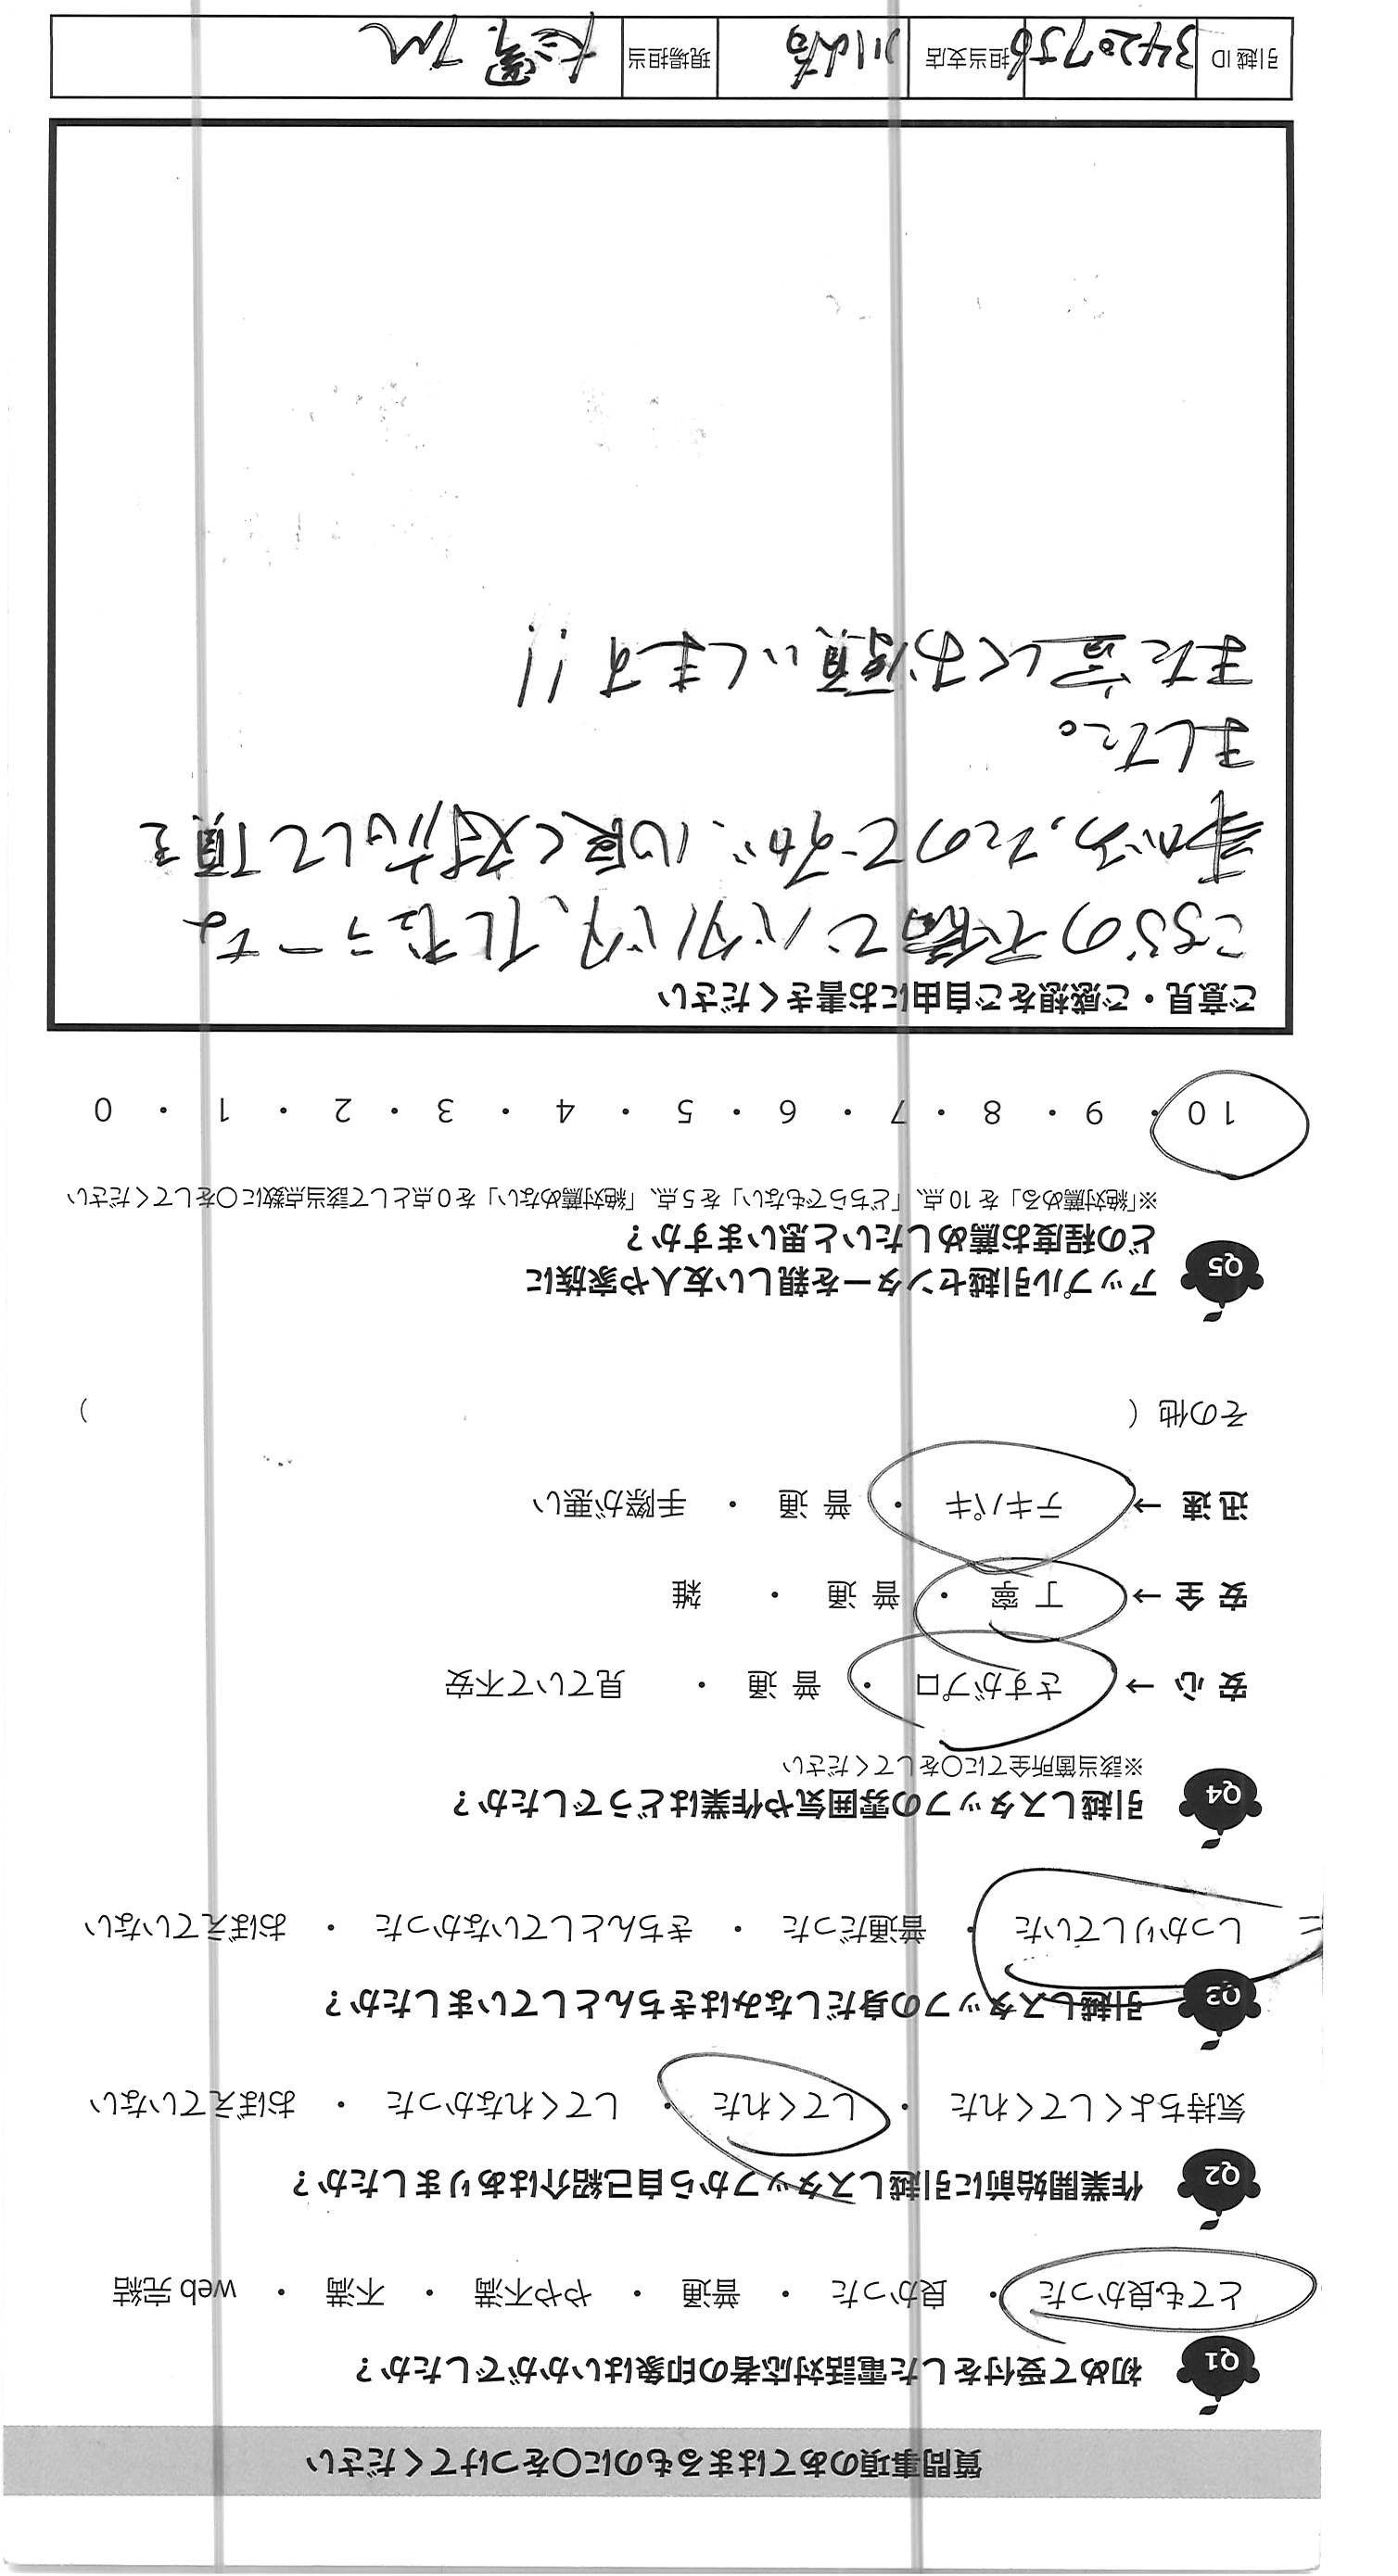 質問事項のあてはまるものに〇をつけてください
Q1 初めて受付をした電話対応者の印象はいかがでしたか？
とても良かった ・ 良かった ・ 普通 ・ やや不満 ・ 不満 ・ web 完結
Q2 作業開始前に引越しスタッフから自己紹介はありましたか？
気持ちよくしてくれた ・ してくれた ・ してくれなかった ・ おぼえていない
Q3 引越しスタッフの身だしなみはきちんとしていましたか？
しっかりしていた ・ 普通だった ・ きちんとしていなかった ・ おぼえていない
Q4 引越しスタッフの雰囲気や作業はどうでしたか？
※該当箇所全てに〇をしてください
安 心 → さすがプロ ・ 普 通 ・ 見ていて不安
安 全 → 丁 寧 ・ 普 通 ・ 雑
迅 速 → テキパキ ・ 普 通 ・ 手際が悪い
その他（ ）
Q5 アップル引越センターを親しい友人や家族に
どの程度お薦めしたいと思いますか？
※「絶対薦める」を 10 点、「どちらでもない」を 5 点、「絶対薦めない」を 0 点として該当点数に〇をしてください
10 ・ 9 ・ 8 ・ 7 ・ 6 ・ 5 ・ 4 ・ 3 ・ 2 ・ 1 ・ 0
ご意見・ご感想をご自由にお書きください
こちらの不備でバタバタ、イレギュラーな
事があったのですが、心良く対応して頂き
ました。
また宜しくお願いします!!
引越 ID 3420756 担当支店 川崎 現場担当